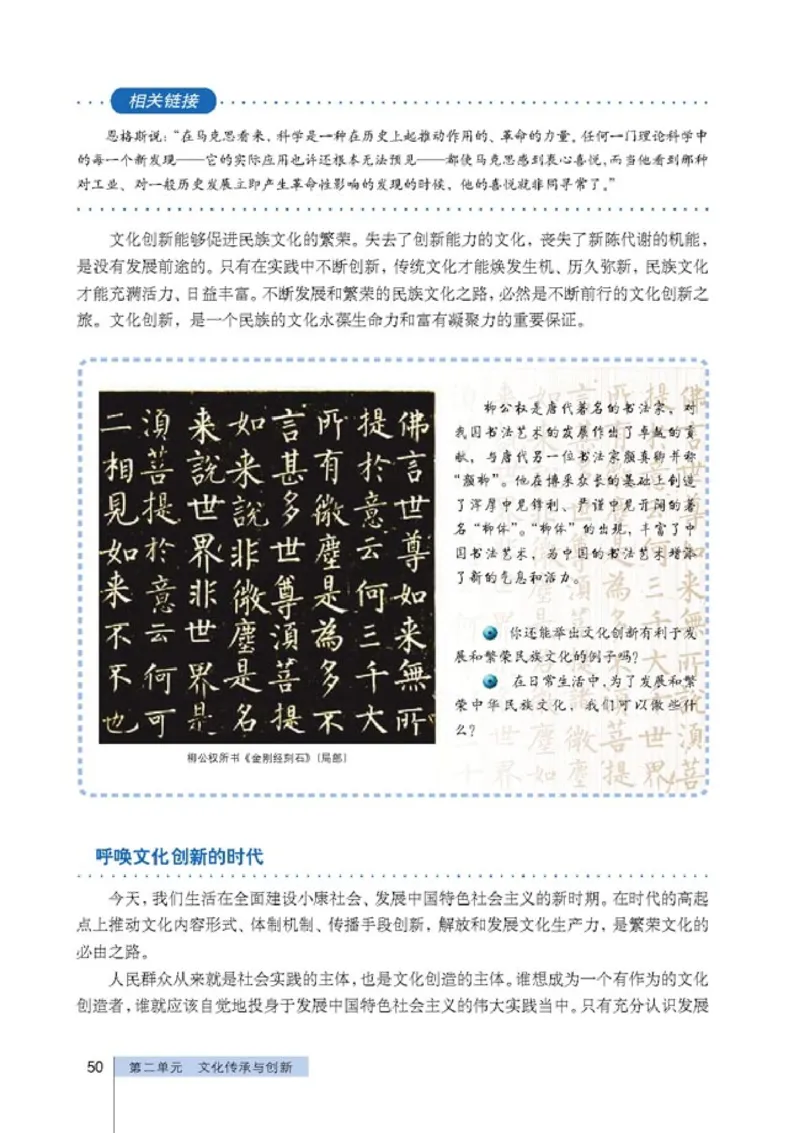 相关链接
恩格斯说：“在马克思看来，科学是一种在历史上起推动作用的、革命的力量。任何一门理论科学中
的每一个新发现——它的实际应用也许还根本无法预见——都使马克思感到衷心喜悦，而当他看到那种
对工业、对一般历史发展立即产生革命性影响的发现的时候，他的喜悦就非同寻常了。”
文化创新能够促进民族文化的繁荣。失去了创新能力的文化，丧失了新陈代谢的机能，
是没有发展前途的。只有在实践中不断创新，传统文化才能焕发生机、历久弥新，民族文化
才能充满活力、日益丰富。不断发展和繁荣的民族文化之路，必然是不断前行的文化创新之
旅。文化创新，是一个民族的文化永葆生命力和富有凝聚力的重要保证。
佛言世尊如来無所
提於意云何三千大
所有微塵是為多不
言甚多世尊須菩提
如来說非微塵是名
来說世界非世界是
須菩提於意云何可
二相見如来不不也
柳公权所书《金刚经刻石》（局部）
柳公权是唐代著名的书法家，对
我国书法艺术的发展作出了卓越的贡
献，与唐代另一位书法家颜真卿并称
“颜柳”。他在博采众长的基础上创造
了浑厚中见锋利、严谨中见开阔的著
名“柳体”。“柳体”的出现，丰富了中
国书法艺术，为中国的书法艺术增添
了新的气息和活力。
你还能举出文化创新有利于发
展和繁荣民族文化的例子吗？
在日常生活中，为了发展和繁
荣中华民族文化，我们可以做些什
么？
呼唤文化创新的时代
今天，我们生活在全面建设小康社会、发展中国特色社会主义的新时期。在时代的高起
点上推动文化内容形式、体制机制、传播手段创新，解放和发展文化生产力，是繁荣文化的
必由之路。
人民群众从来就是社会实践的主体，也是文化创造的主体。谁想成为一个有作为的文化
创造者，谁就应该自觉地投身于发展中国特色社会主义的伟大实践当中。只有充分认识发展
50 第二单元 文化传承与创新